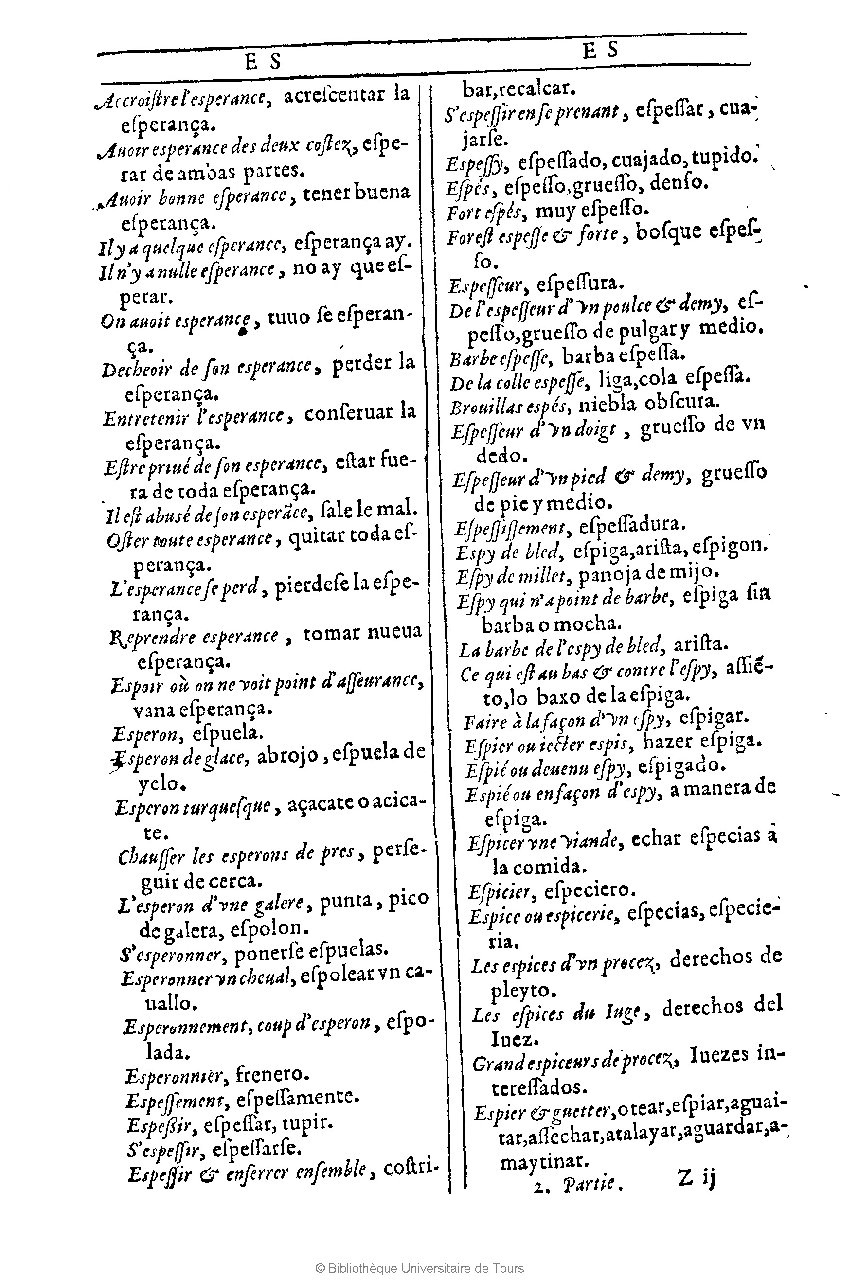 E S
Accroiſtre l'esperance, acreſcentar la
eſperança.
Auoir esperance des deux coſtez, eſpe-
rar de ambas partes.
Auoir bonne eſperance, tener buena
eſperança.
Il y a quelque eſperance, eſperança ay.
Il n'y a nulle eſperance, no ay que eſ-
perar.
On auoit esperance, tuuo ſe eſperan-
ça.
Decheoir de ſon esperance, perder la
eſperança.
Entretenir l'esperance, conſeruar la
eſperança.
Eſtre priué de ſon esperance, eſtar fue-
ra de toda eſperança.
Il eſt abusé de ſon esperãce, ſale le mal.
Oſter toute esperance, quitar toda eſ-
perança.
L'esperance ſe perd, pierdeſe la eſpe-
rança.
Reprendre esperance, tomar nueua
eſperança.
Espoir où on ne voit point d'aſſeurance,
vana eſperança.
Esperon, eſpuela.
Esperon de glace, abrojo, eſpuela de
yelo.
Esperon turqueſque, açacate o acica-
te.
Chauſſer les esperons de pres, perſe-
guir de cerca.
L'esperon d'vne galere, punta, pico
de galera, eſpolon.
S'esperonner, ponerſe eſpuelas.
Esperonner vn cheual, eſpolear vn ca-
uallo.
Esperonnement, coup d'esperon, eſpo-
lada.
Esperonnier, frenero.
Espeſſement, eſpeſſamente.
Espeſſir, eſpeſſar, tupir.
S'espeſſir, eſpeſſarſe.
Espeſſir & enſerrer enſemble, coſtri-
E S
bar, recalcar.
S'espeſſir en ſe prenant, eſpeſſar, cua-
jarſe.
Espeſſy, eſpeſſado, cuajado, tupido.
Eſpés, eſpeſſo, grueſſo, denſo.
Fort eſpés, muy eſpeſſo.
Foreſt espeſſe & forte, boſque eſpeſ-
ſo.
Espeſſeur, eſpeſſura.
De l'espeſſeur d'vn poulce & demy, eſ-
peſſo, grueſſo de pulgar y medio.
Barbe eſpeſſe, barba eſpeſſa.
De la colle espeſſe, liga, cola eſpeſſa.
Brouillas espés, niebla obſcura.
Eſpeſſeur d'vn doigt, grueſſo de vn
dedo.
Eſpeſſeur d'vn pied & demy, grueſſo
de pie y medio.
Eſpeſſiſſement, eſpeſſadura.
Espy de bled, eſpiga, ariſta, eſpigon.
Eſpy de millet, panoja de mijo.
Eſpy qui n'a point de barbe, eſpiga ſin
barba o mocha.
La barbe de l'espy de bled, ariſta.
Ce qui eſt au bas & contre l'eſpy, aſſiẽ-
to, lo baxo de la eſpiga.
Faire à la façon d'vn eſpy, eſpigar.
Eſpier ou iecter espis, hazer eſpiga.
Eſpié ou deuenu eſpy, eſpigado.
Espié ou en façon d'espy, a manera de
eſpiga.
Eſpicer vne viande, echar eſpecias a
la comida.
Eſpicier, eſpeciero.
Espice ou espicerie, eſpecias, eſpecie-
ria.
Les espices d'vn procez, derechos de
pleyto.
Les eſpices du Iuge, derechos del
Iuez.
Grand espiceurs de procez, Iuezes in-
tereſſados.
Espier & guetter, otear, eſpiar, aguai-
tar, aſſechar, atalayar, aguardar, a-
maytinar.
2. Partie. Z ij
© Bibliothèque Universitaire de Tours